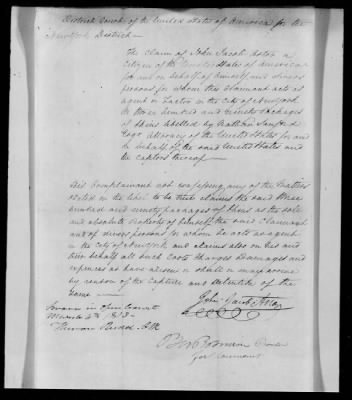 District Court of the United States of America for the
New York District
The Claim of John Jacob Astor a
Citizen of the United States of America
for and on behalf of himself and divers
persons for whom this Claimant acts as
agent or Factor in the City of New York
to three hundred and ninety Packages
of Skins libelled by Nathan Sanford
Esqr Attorney of the United States for and
on behalf of the said United States and
the Captors thereof
This Complainant not confessing any of the matters
stated in the libel to be true claims the said three
hundred and ninety packages of Skins as the sole
and absolute Property of himself the said Claimant
and of divers persons for whom he acts as agent
in the City of New York and claims also on his and
their behalf all such Costs Charges Damages and
expences as have arisen or shall or may accrue
by reason of the Capture and detention of the
same
John Jacob Astor
Sworn in open Court
March 4th 1813
Theron Rudd Clk
for Claimant